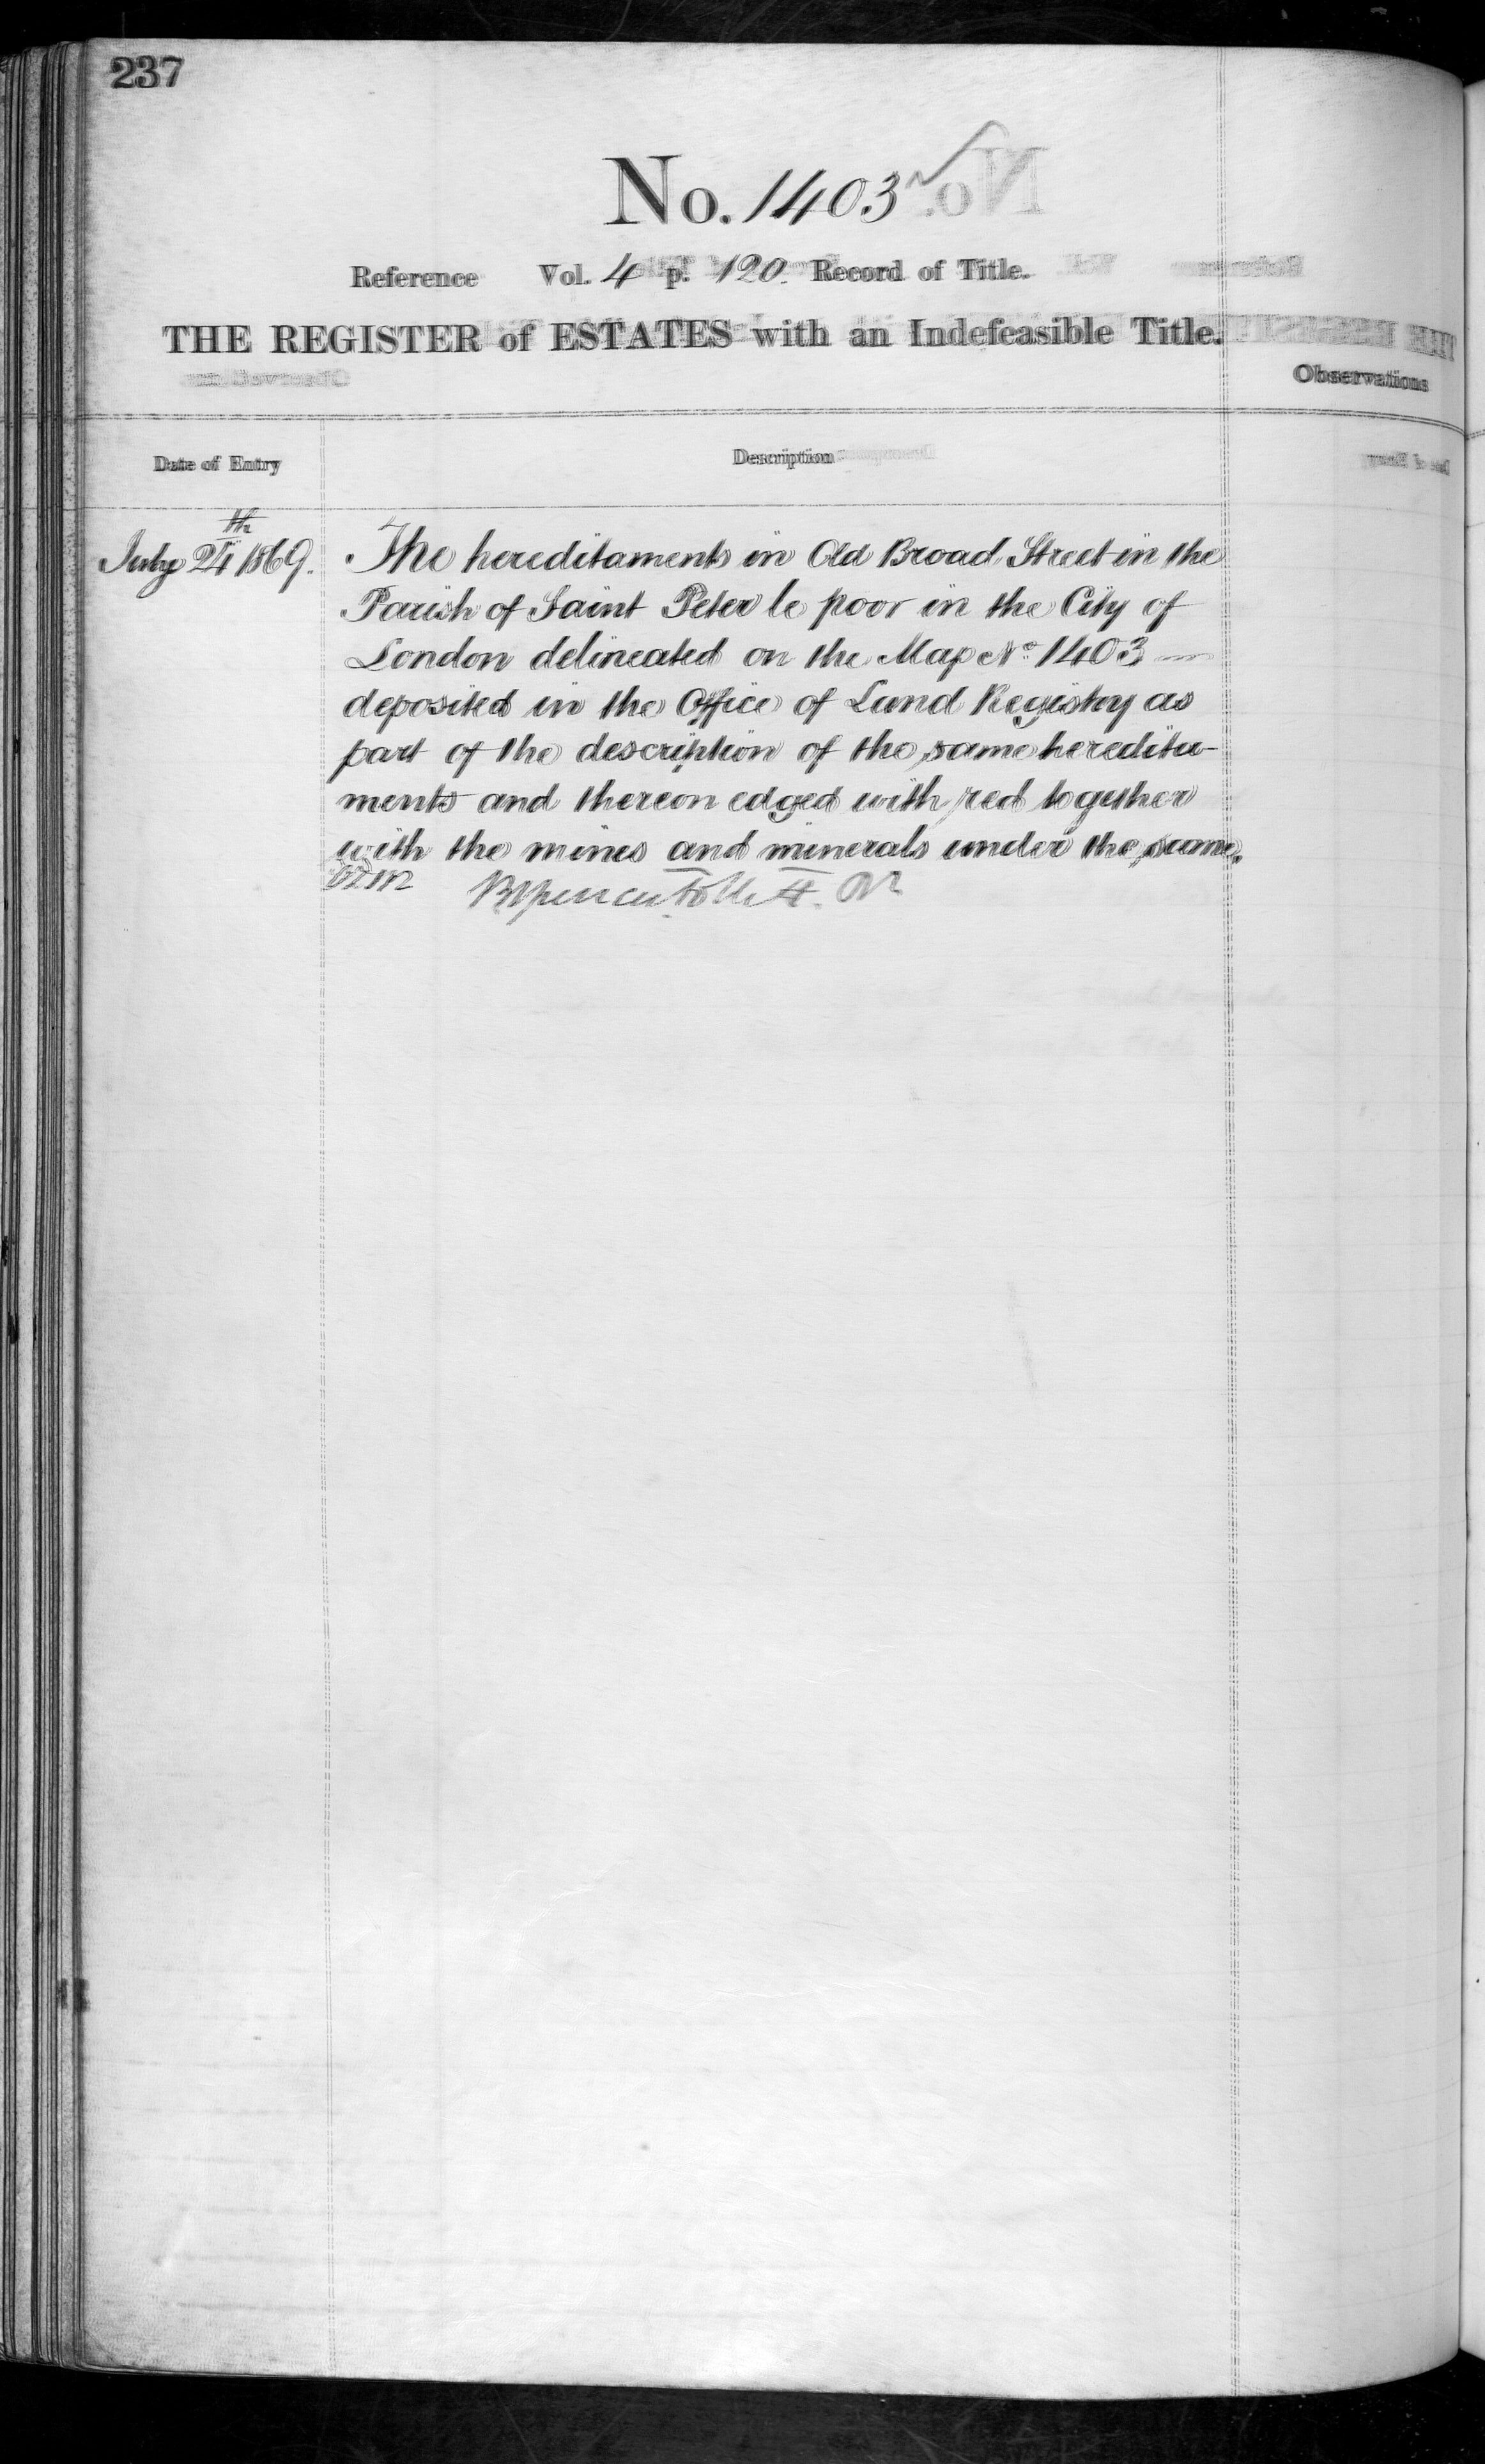 237
No. 1403
Reference Vol. 4 p. 120. Record of Title.
THE REGISTER of ESTATES with an Indefeasible Title.
Observations
Date of Entry
Description
July 24th 1869.
The hereditaments in Old Broad Street in the
Parish of Saint Peter le poor in the City of
London delineated on the Map No. 1403
deposited in the Office of Land Registry as
part of the description of the same heredita-
ments and thereon edged with red together
with the mines and minerals under the same.